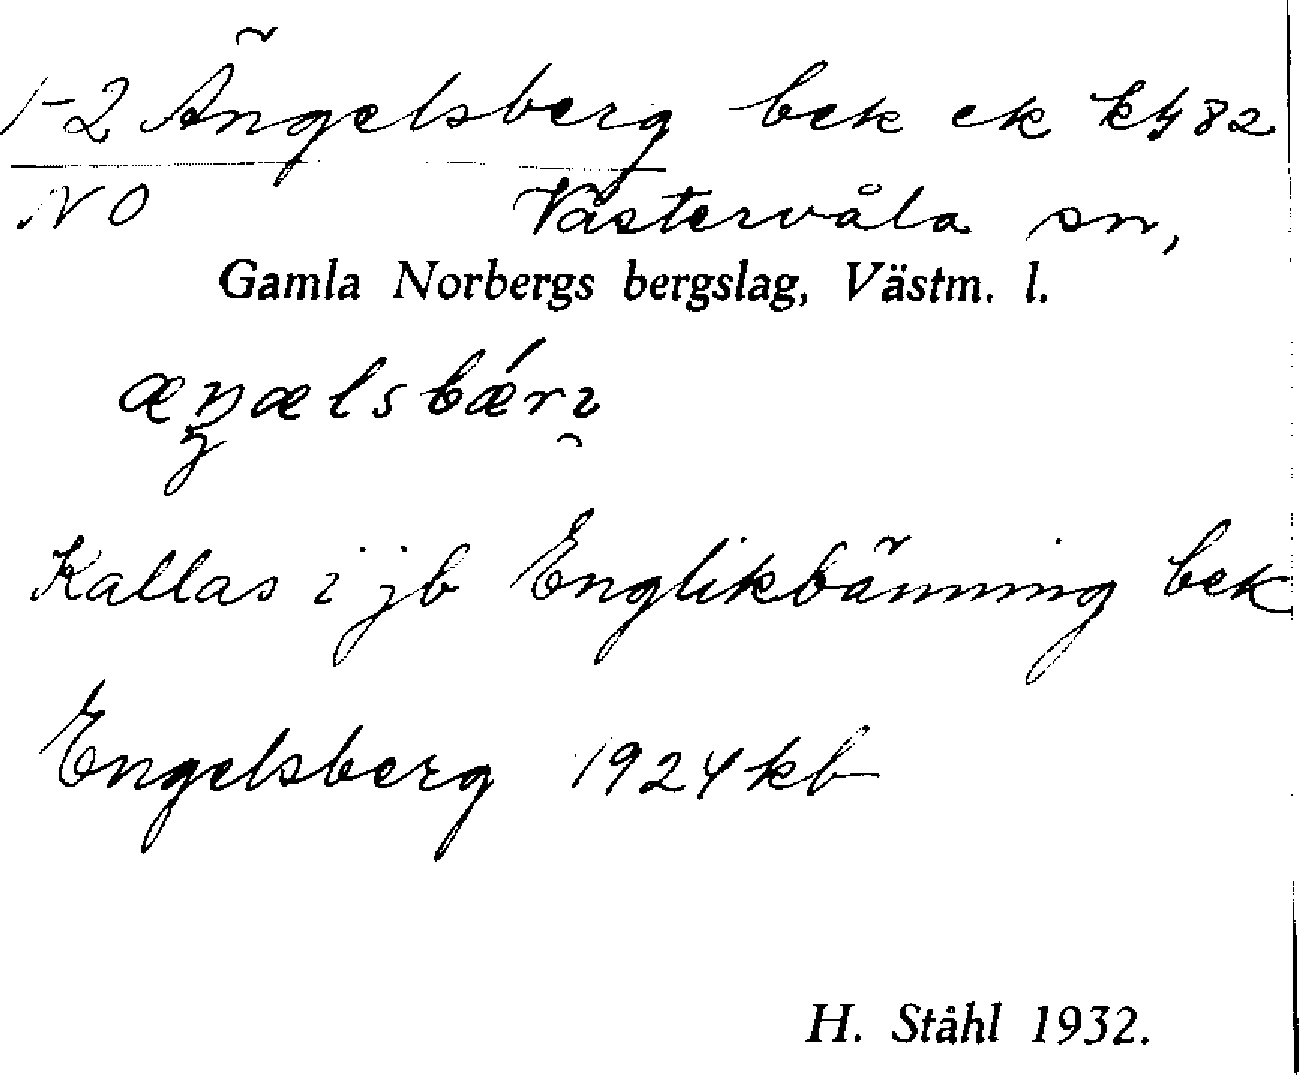 1-2 Ängelsberg bek ek kg 82
NO Västervåla sn,
Gamla Norbergs bergslag, Västm. l.
æŋælsbǽrı̯
Kallas i jb Englikbänning bek
Engelsberg 1924 kb
H. Ståhl 1932.